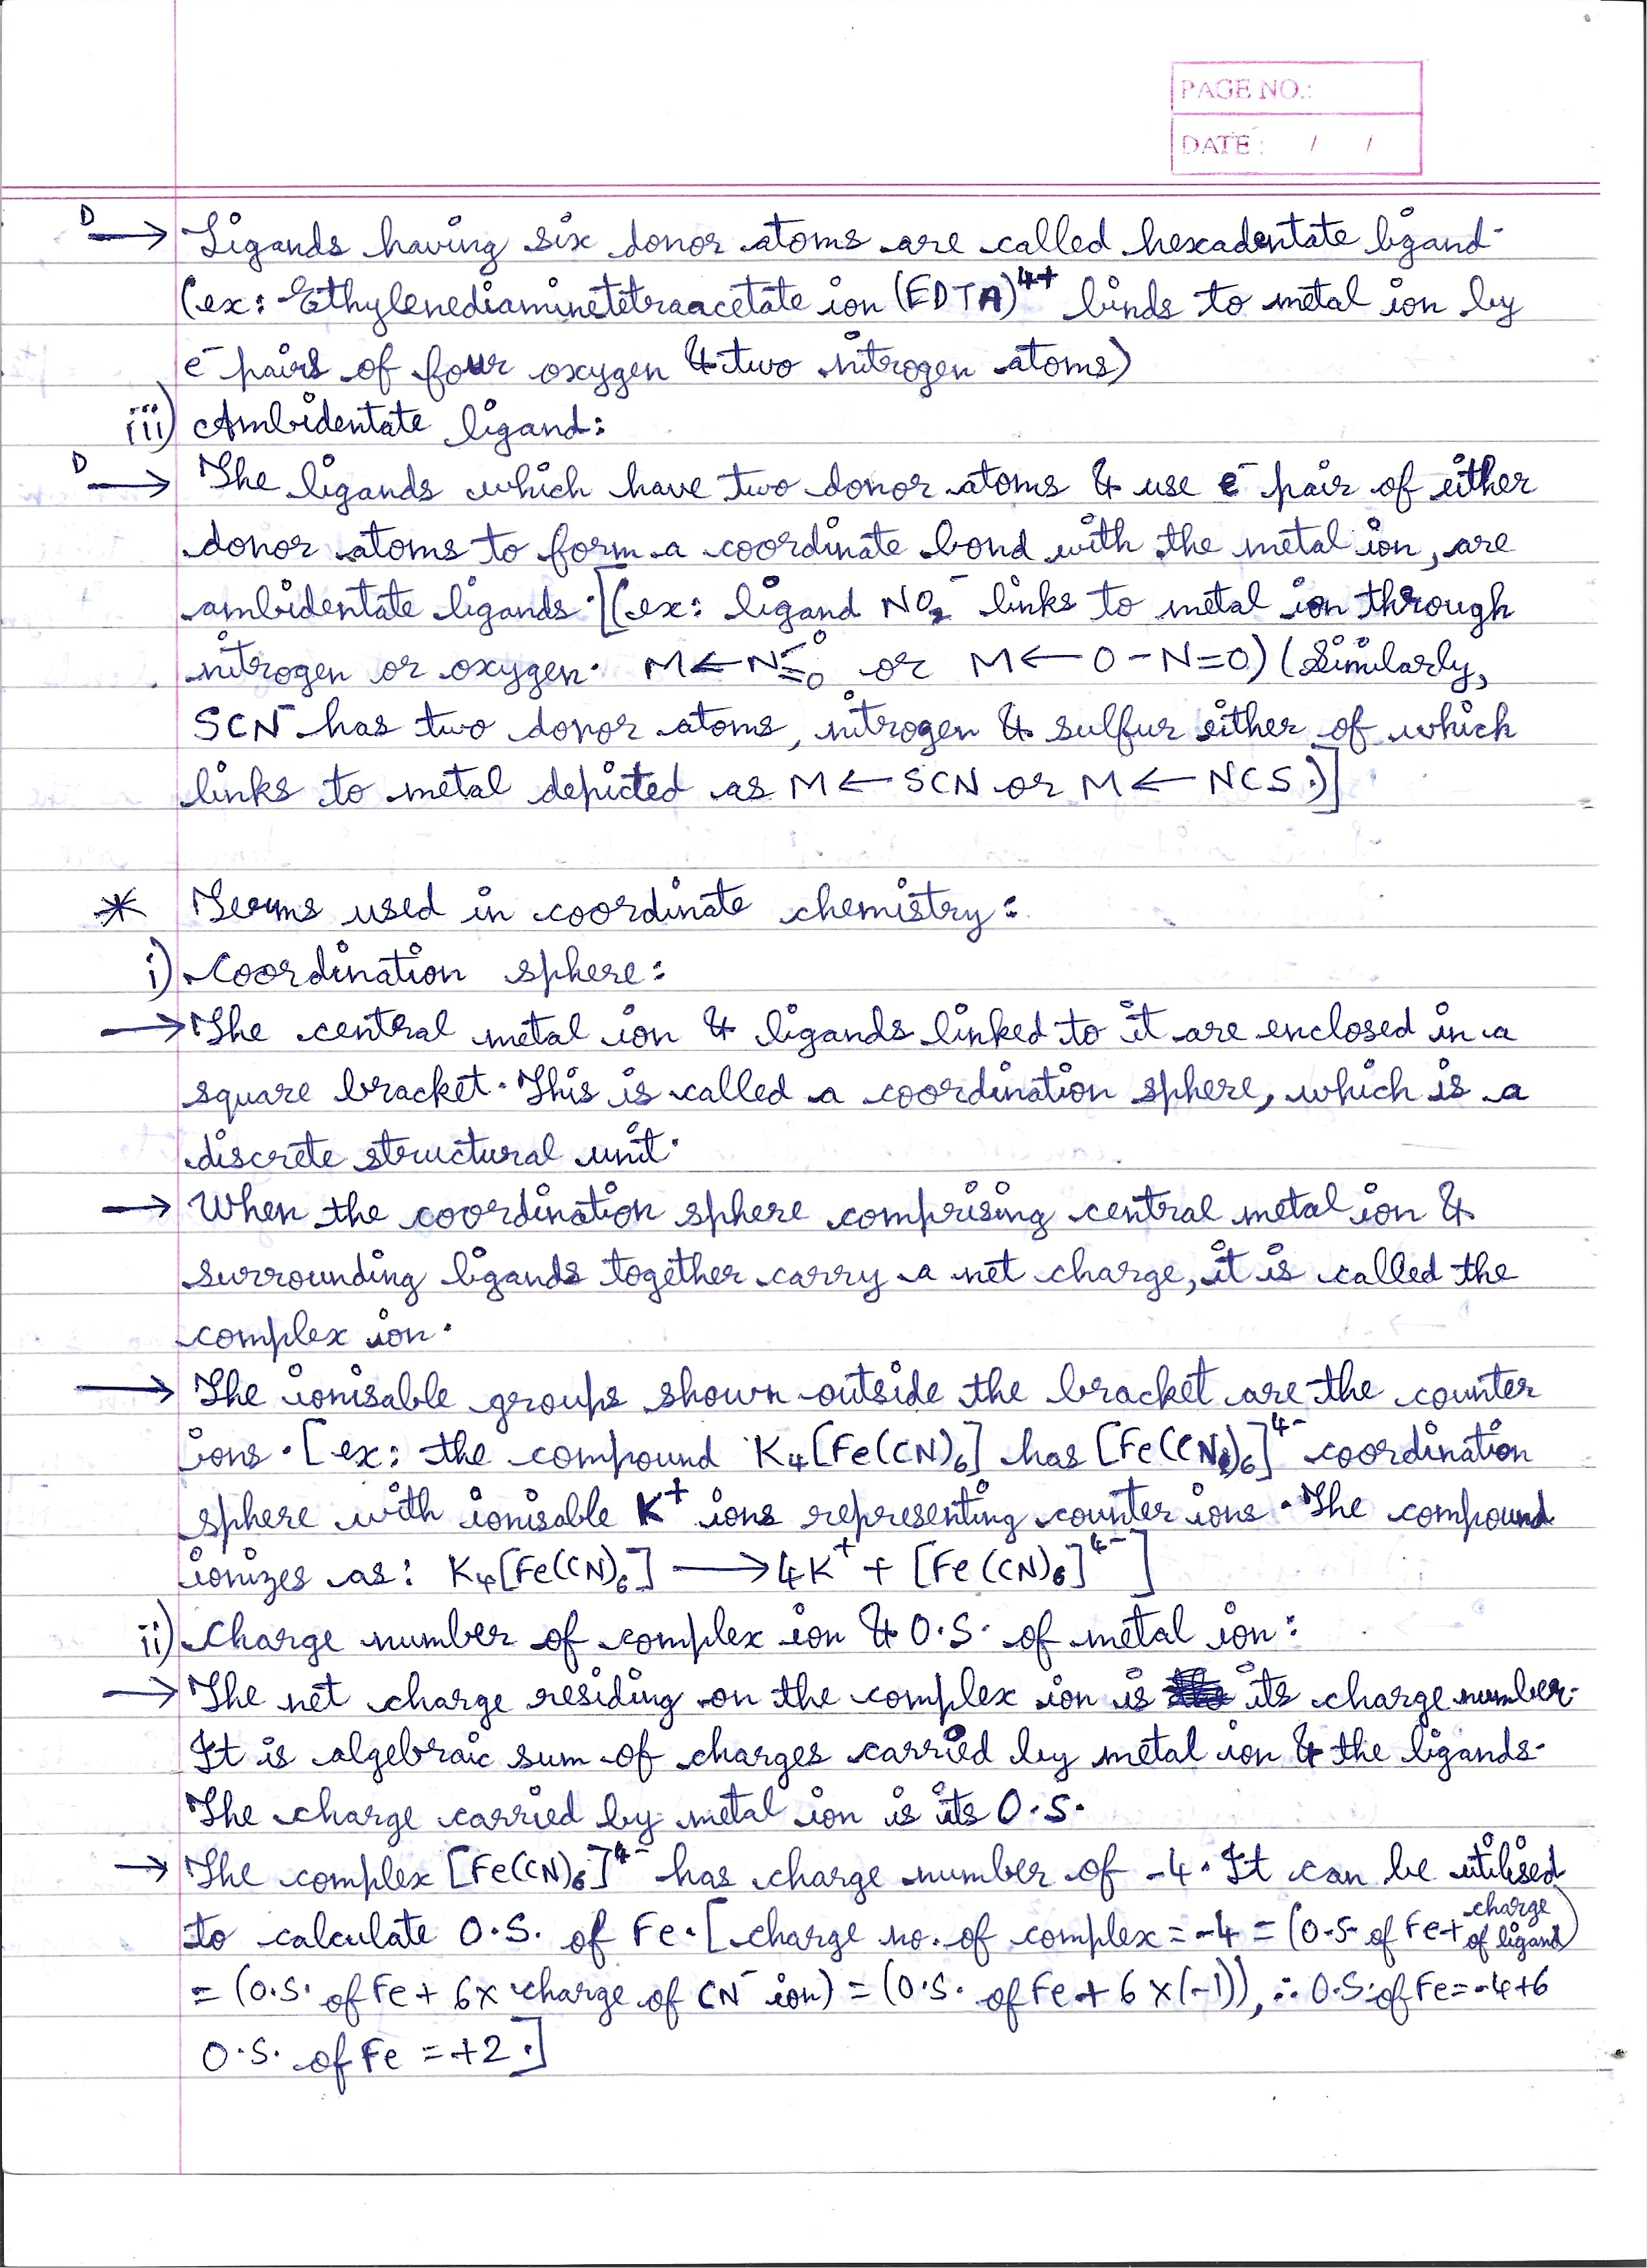 PAGE NO.:
DATE: / /
D → Ligands having six donor atoms are called hexadentate ligand.
(ex: Ethylenediaminetetraacetate ion (EDTA)⁴⁺ binds to metal ion by
e⁻ pairs of four oxygen & two nitrogen atoms)
iii) Ambidentate ligand:
D → The ligands which have two donor atoms & use e⁻ pair of either
donor atoms to form a coordinate bond with the metal ion, are
ambidentate ligands. [(ex: ligand NO₂⁻ links to metal ion through
nitrogen or oxygen. M←N<O =O or M←O–N=O) (Similarly,
SCN⁻ has two donor atoms, nitrogen & sulfur either of which
links to metal depicted as M←SCN or M←NCS.)]
* Terms used in coordinate chemistry:
i) Coordination sphere:
→ The central metal ion & ligands linked to it are enclosed in a
square bracket. This is called a coordination sphere, which is a
discrete structural unit.
→ When the coordination sphere comprising central metal ion &
surrounding ligands together carry a net charge, it is called the
complex ion.
→ The ionisable groups shown outside the bracket are the counter
ions. [ex: the compound K₄[Fe(CN)₆] has [Fe(CN)₆]⁴⁻ coordination
sphere with ionisable K⁺ ions representing counter ions. The compound
ionizes as: K₄[Fe(CN)₆] → 4K⁺ + [Fe(CN)₆]⁴⁻]
ii) Charge number of complex ion & O.S. of metal ion:
→ The net charge residing on the complex ion is its charge number.
It is algebraic sum of charges carried by metal ion & the ligands.
The charge carried by metal ion is its O.S.
→ The complex [Fe(CN)₆]⁴⁻ has charge number of -4. It can be utilised
to calculate O.S. of Fe. [charge no. of complex = -4 = (O.S. of Fe + charge of ligand)
= (O.S. of Fe + 6x charge of CN⁻ ion) = (O.S. of Fe + 6 x (-1)), ∴ O.S. of Fe = -4+6
O.S. of Fe = +2.]